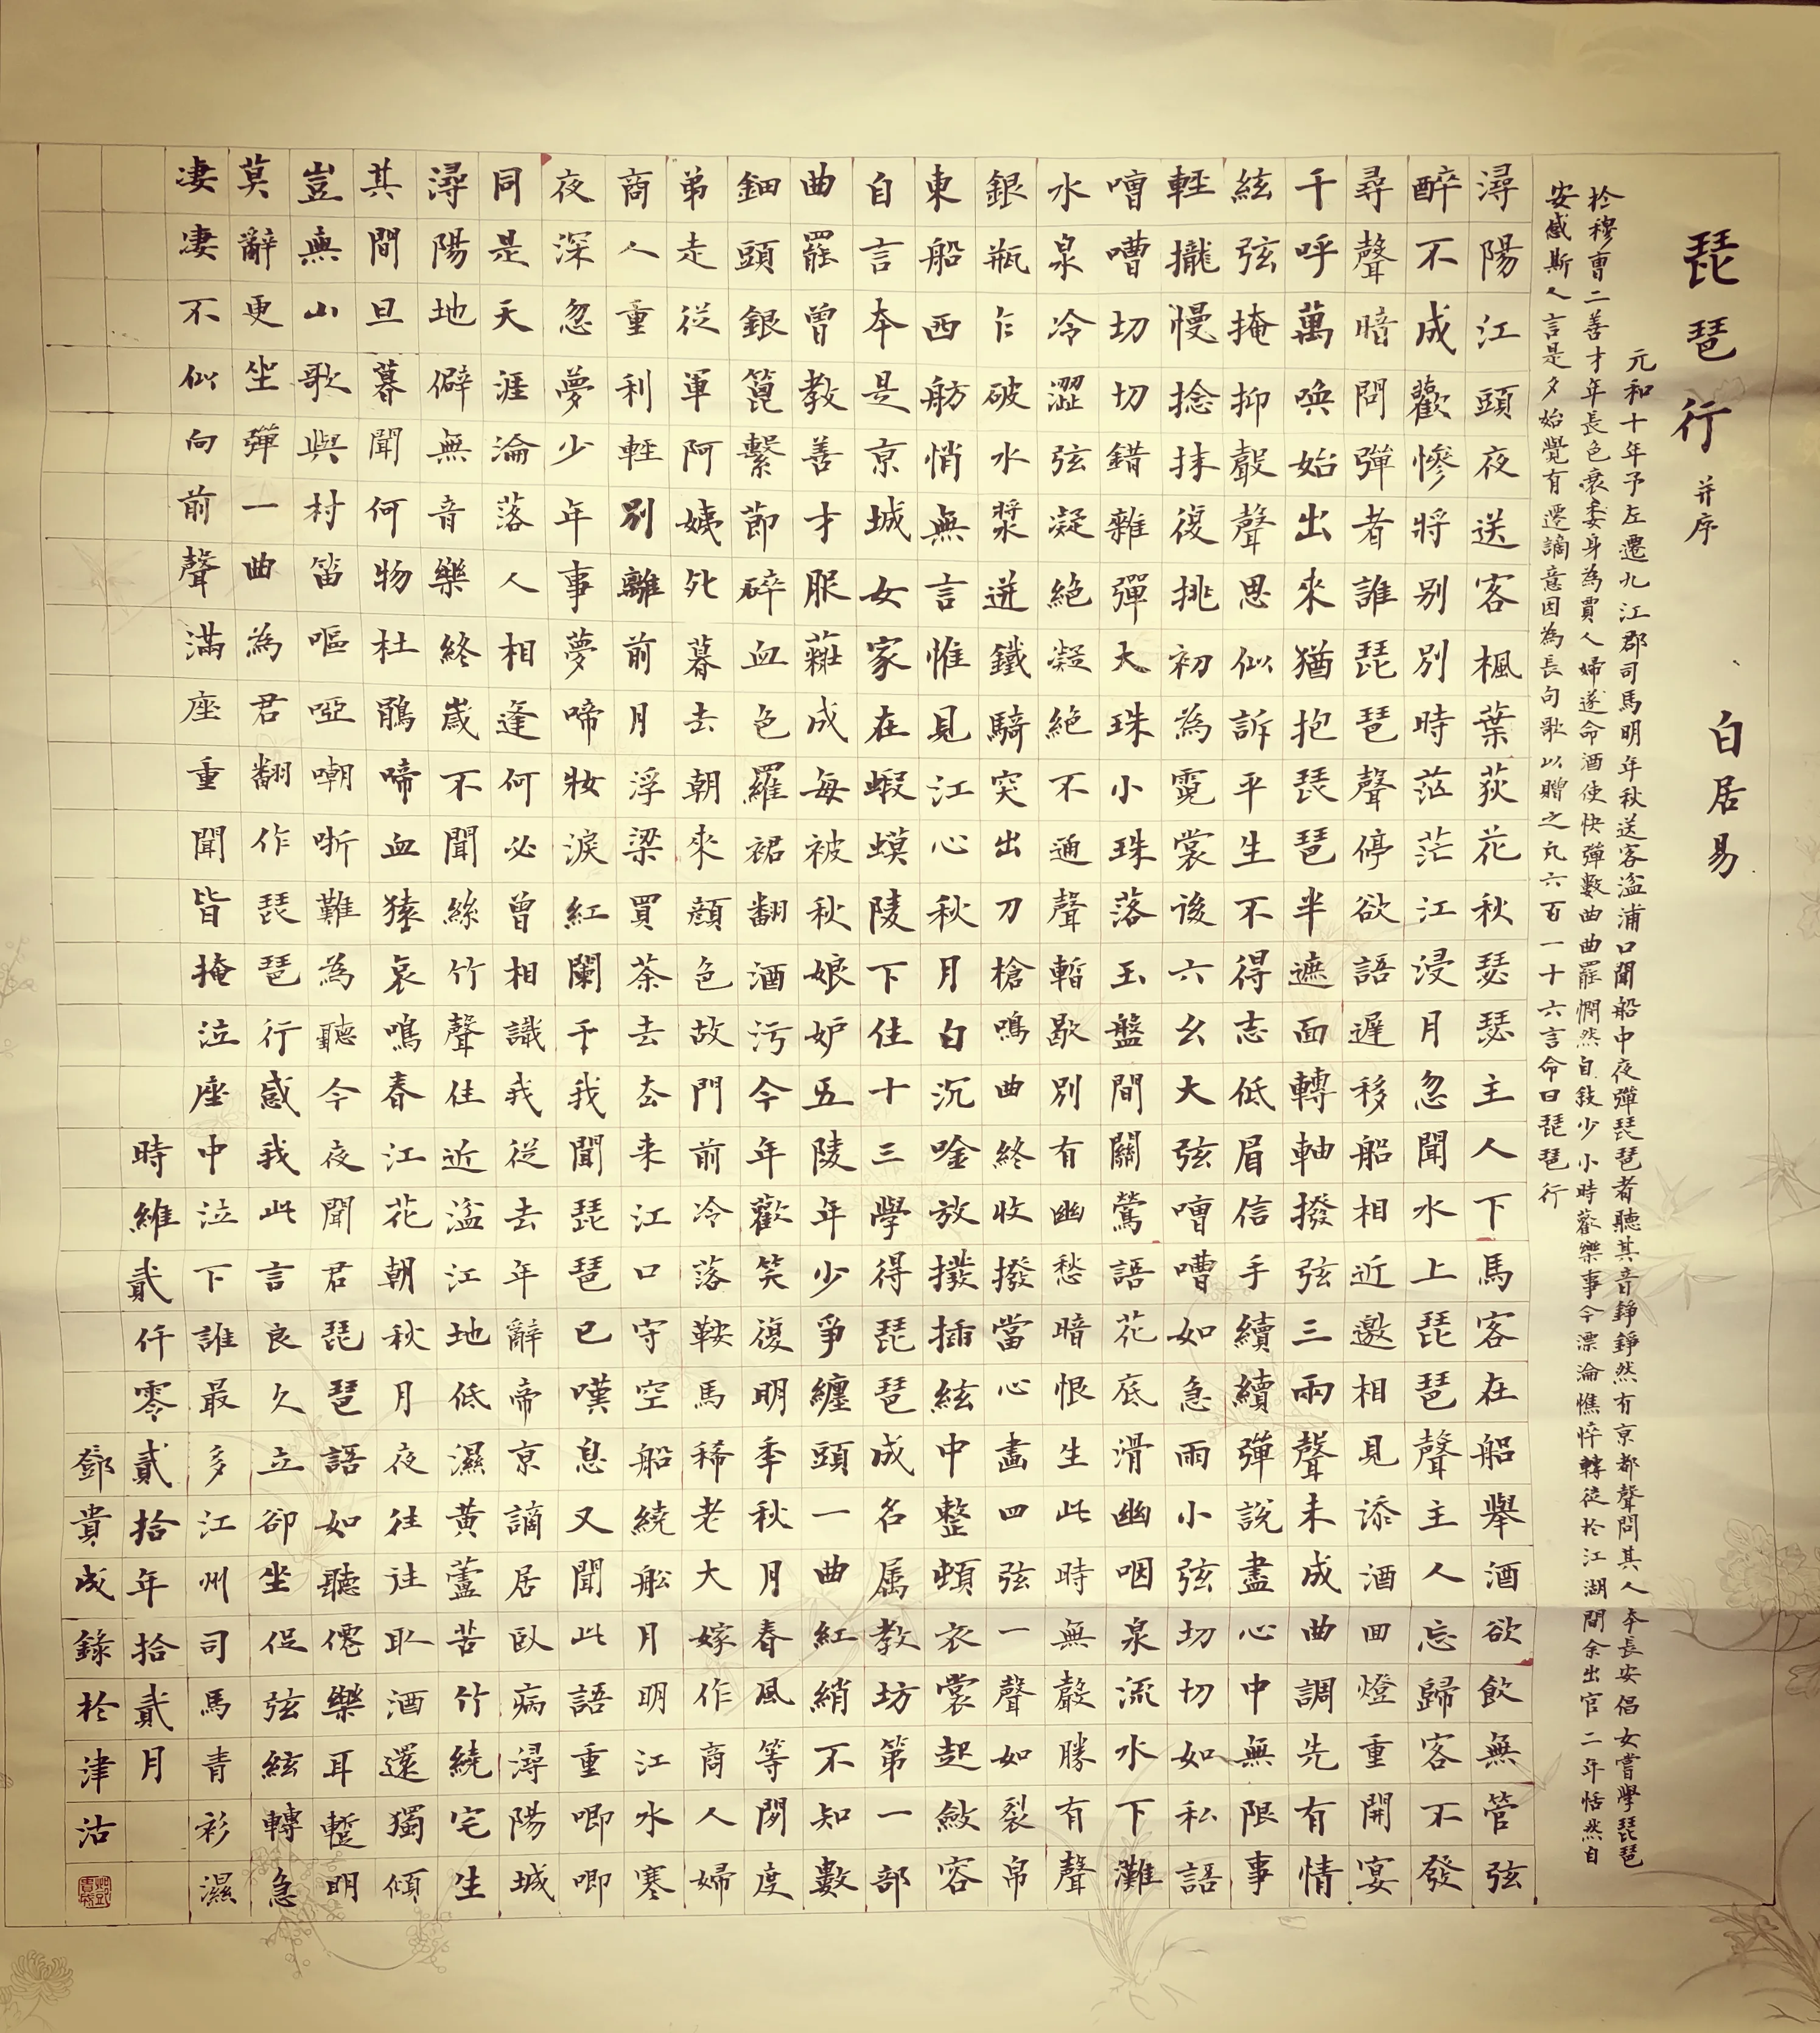 琵琶行 并序
白居易
元和十年予左遷九江郡司馬明年秋送客湓浦口聞船中夜彈琵琶者聽其音錚錚然有京都聲問其人本長安倡女嘗學琵琶
於穆曹二善才年長色衰委身為賈人婦遂命酒使快彈數曲曲罷憫然自敍少小時歡樂事今漂淪憔悴轉徙於江湖間余出官二年恬然自
安感斯人言是夕始覺有遷謫意因為長句歌以贈之凡六百一十六言命曰琵琶行
潯陽江頭夜送客楓葉荻花秋瑟瑟主人下馬客在船舉酒欲飲無管弦
醉不成歡慘將別別時茫茫江浸月忽聞水上琵琶聲主人忘歸客不發
尋聲暗問彈者誰琵琶聲停欲語遲移船相近邀相見添酒回燈重開宴
千呼萬喚始出來猶抱琵琶半遮面轉軸撥弦三兩聲未成曲調先有情
絃弦掩抑聲聲思似訴平生不得志低眉信手續續彈說盡心中無限事
輕攏慢捻抹復挑初為霓裳後六幺大弦嘈嘈如急雨小弦切切如私語
嘈嘈切切錯雜彈大珠小珠落玉盤間關鶯語花底滑幽咽泉流水下灘
水泉冷澀弦凝絕凝絕不通聲暫歇別有幽愁暗恨生此時無聲勝有聲
銀瓶乍破水漿迸鐵騎突出刀槍鳴曲終收撥當心畫四弦一聲如裂帛
東船西舫悄無言惟見江心秋月白沉唫放撥插絃中整頓衣裳起斂容
自言本是京城女家在蝦蟆陵下住十三學得琵琶成名属教坊第一部
曲罷曾教善才服粧成每被秋娘妒五陵年少爭纏頭一曲紅綃不知數
鈿頭銀篦繫節碎血色羅裙翻酒污今年歡笑復明季秋月春風等閑度
弟走從軍阿姨死暮去朝來顏色故門前冷落鞍馬稀老大嫁作商人婦
商人重利輕別離前月浮梁買茶去去来江口守空船繞船月明江水寒
夜深忽夢少年事夢啼妝淚紅闌干我聞琵琶已嘆息又聞此語重唧唧
同是天涯淪落人相逢何必曾相識我從去年辭帝京謫居臥病潯陽城
潯陽地僻無音樂終歲不聞絲竹聲住近湓江地低濕黃蘆苦竹繞宅生
其間旦暮聞何物杜鵑啼血猿哀鳴春江花朝秋月夜往往取酒還獨傾
豈無山歌與村笛嘔啞嘲哳難為聽今夜聞君琵琶語如聽僊樂耳蹔明
莫辭更坐彈一曲為君翻作琵琶行感我此言良久立卻坐促弦絃轉急
凄凄不似向前聲滿座重聞皆掩泣座中泣下誰最多江州司馬青衫濕
時維貳仟零貳拾年拾貳月
鄧貴成錄於津沽